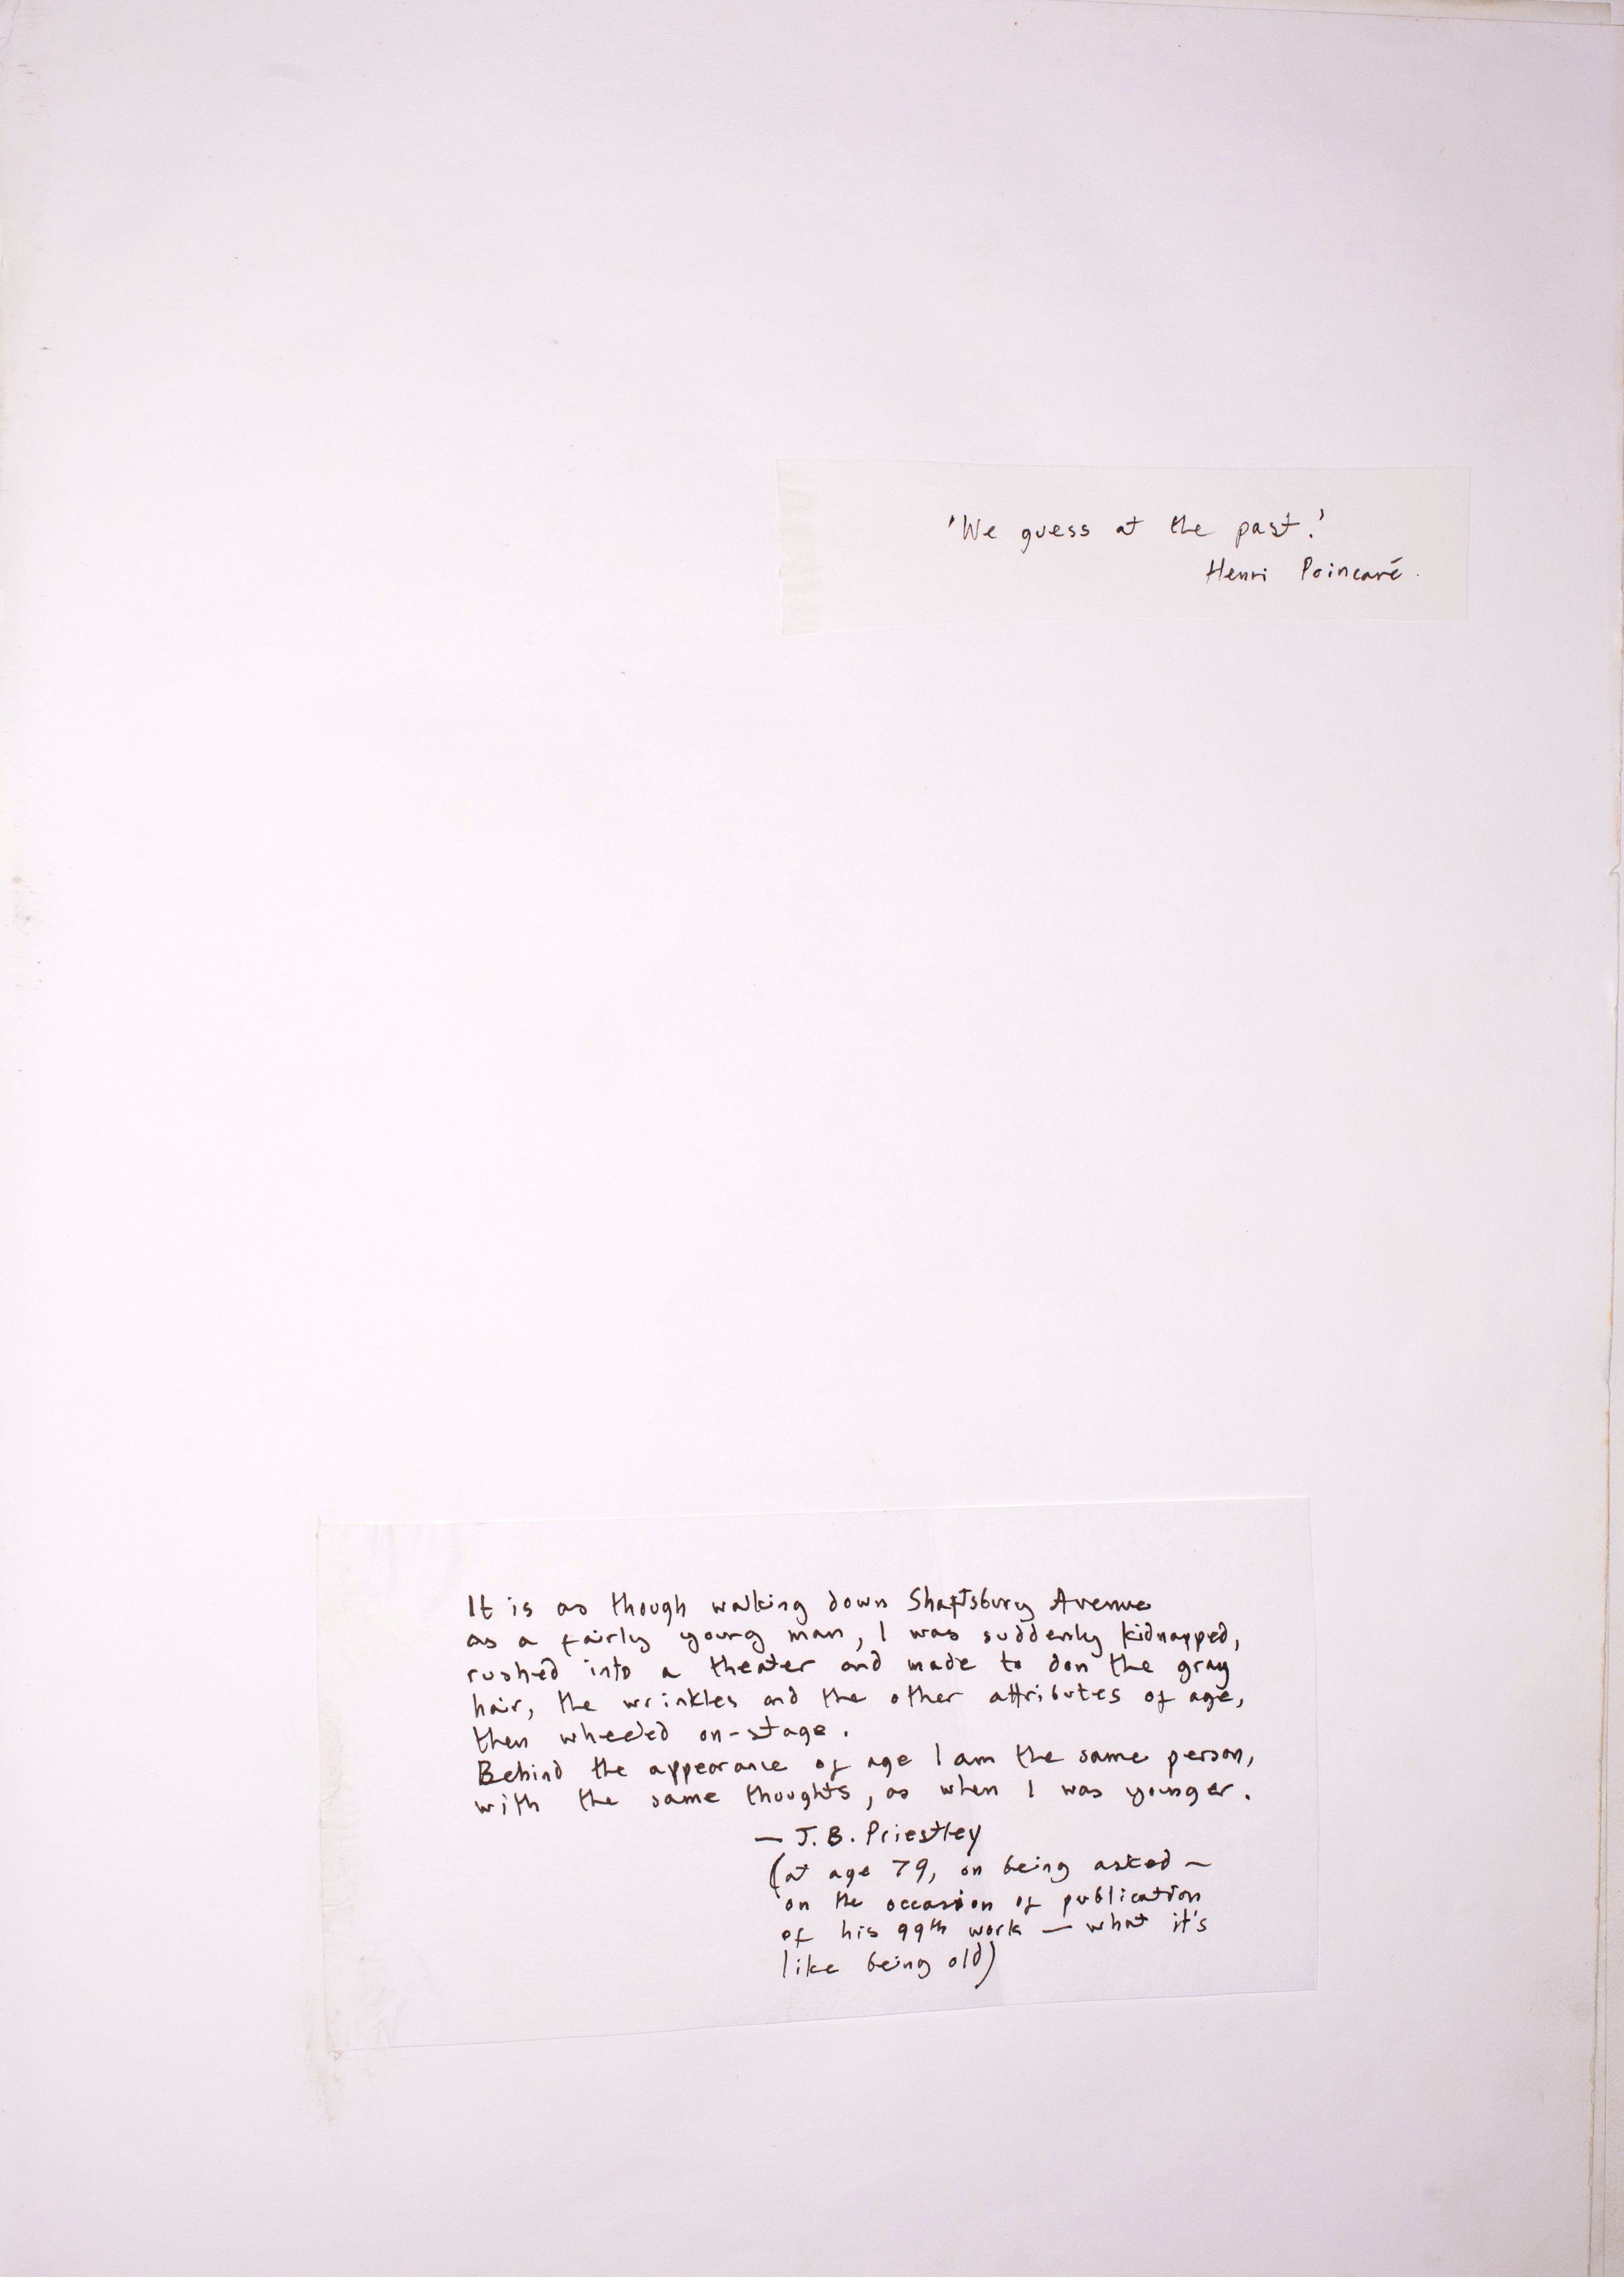 'We guess at the past.'
Henri Poincaré.
It is as though walking down Shaftsbury Avenue
as a fairly young man, I was suddenly kidnapped,
rushed into a theater and made to don the gray
hair, the wrinkles and the other attributes of age,
then wheeled on-stage.
Behind the appearance of age I am the same person,
with the same thoughts, as when I was younger.
— J. B. Priestley
(at age 79, on being asked —
on the occasion of publication
of his 99th work — what it's
like being old)